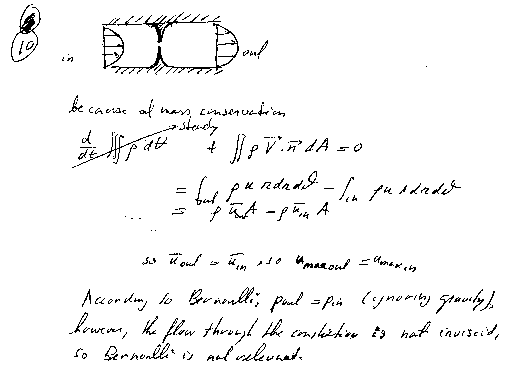 10
in
out
because of mass conservation
steady
d/dt ∭ρ dV + ∬ρ V⃗·n⃗ dA = 0
= ∫out ρ u r dr dϑ − ∫in ρ u r dr dϑ
= ρ ūout A − ρ ūin A
... ..
so ūout = ūin, so umaxout = umaxin
According to Bernoulli, pout = pin (ignoring gravity),
however, the flow through the constriction is not inviscid,
so Bernoulli is not relevant.